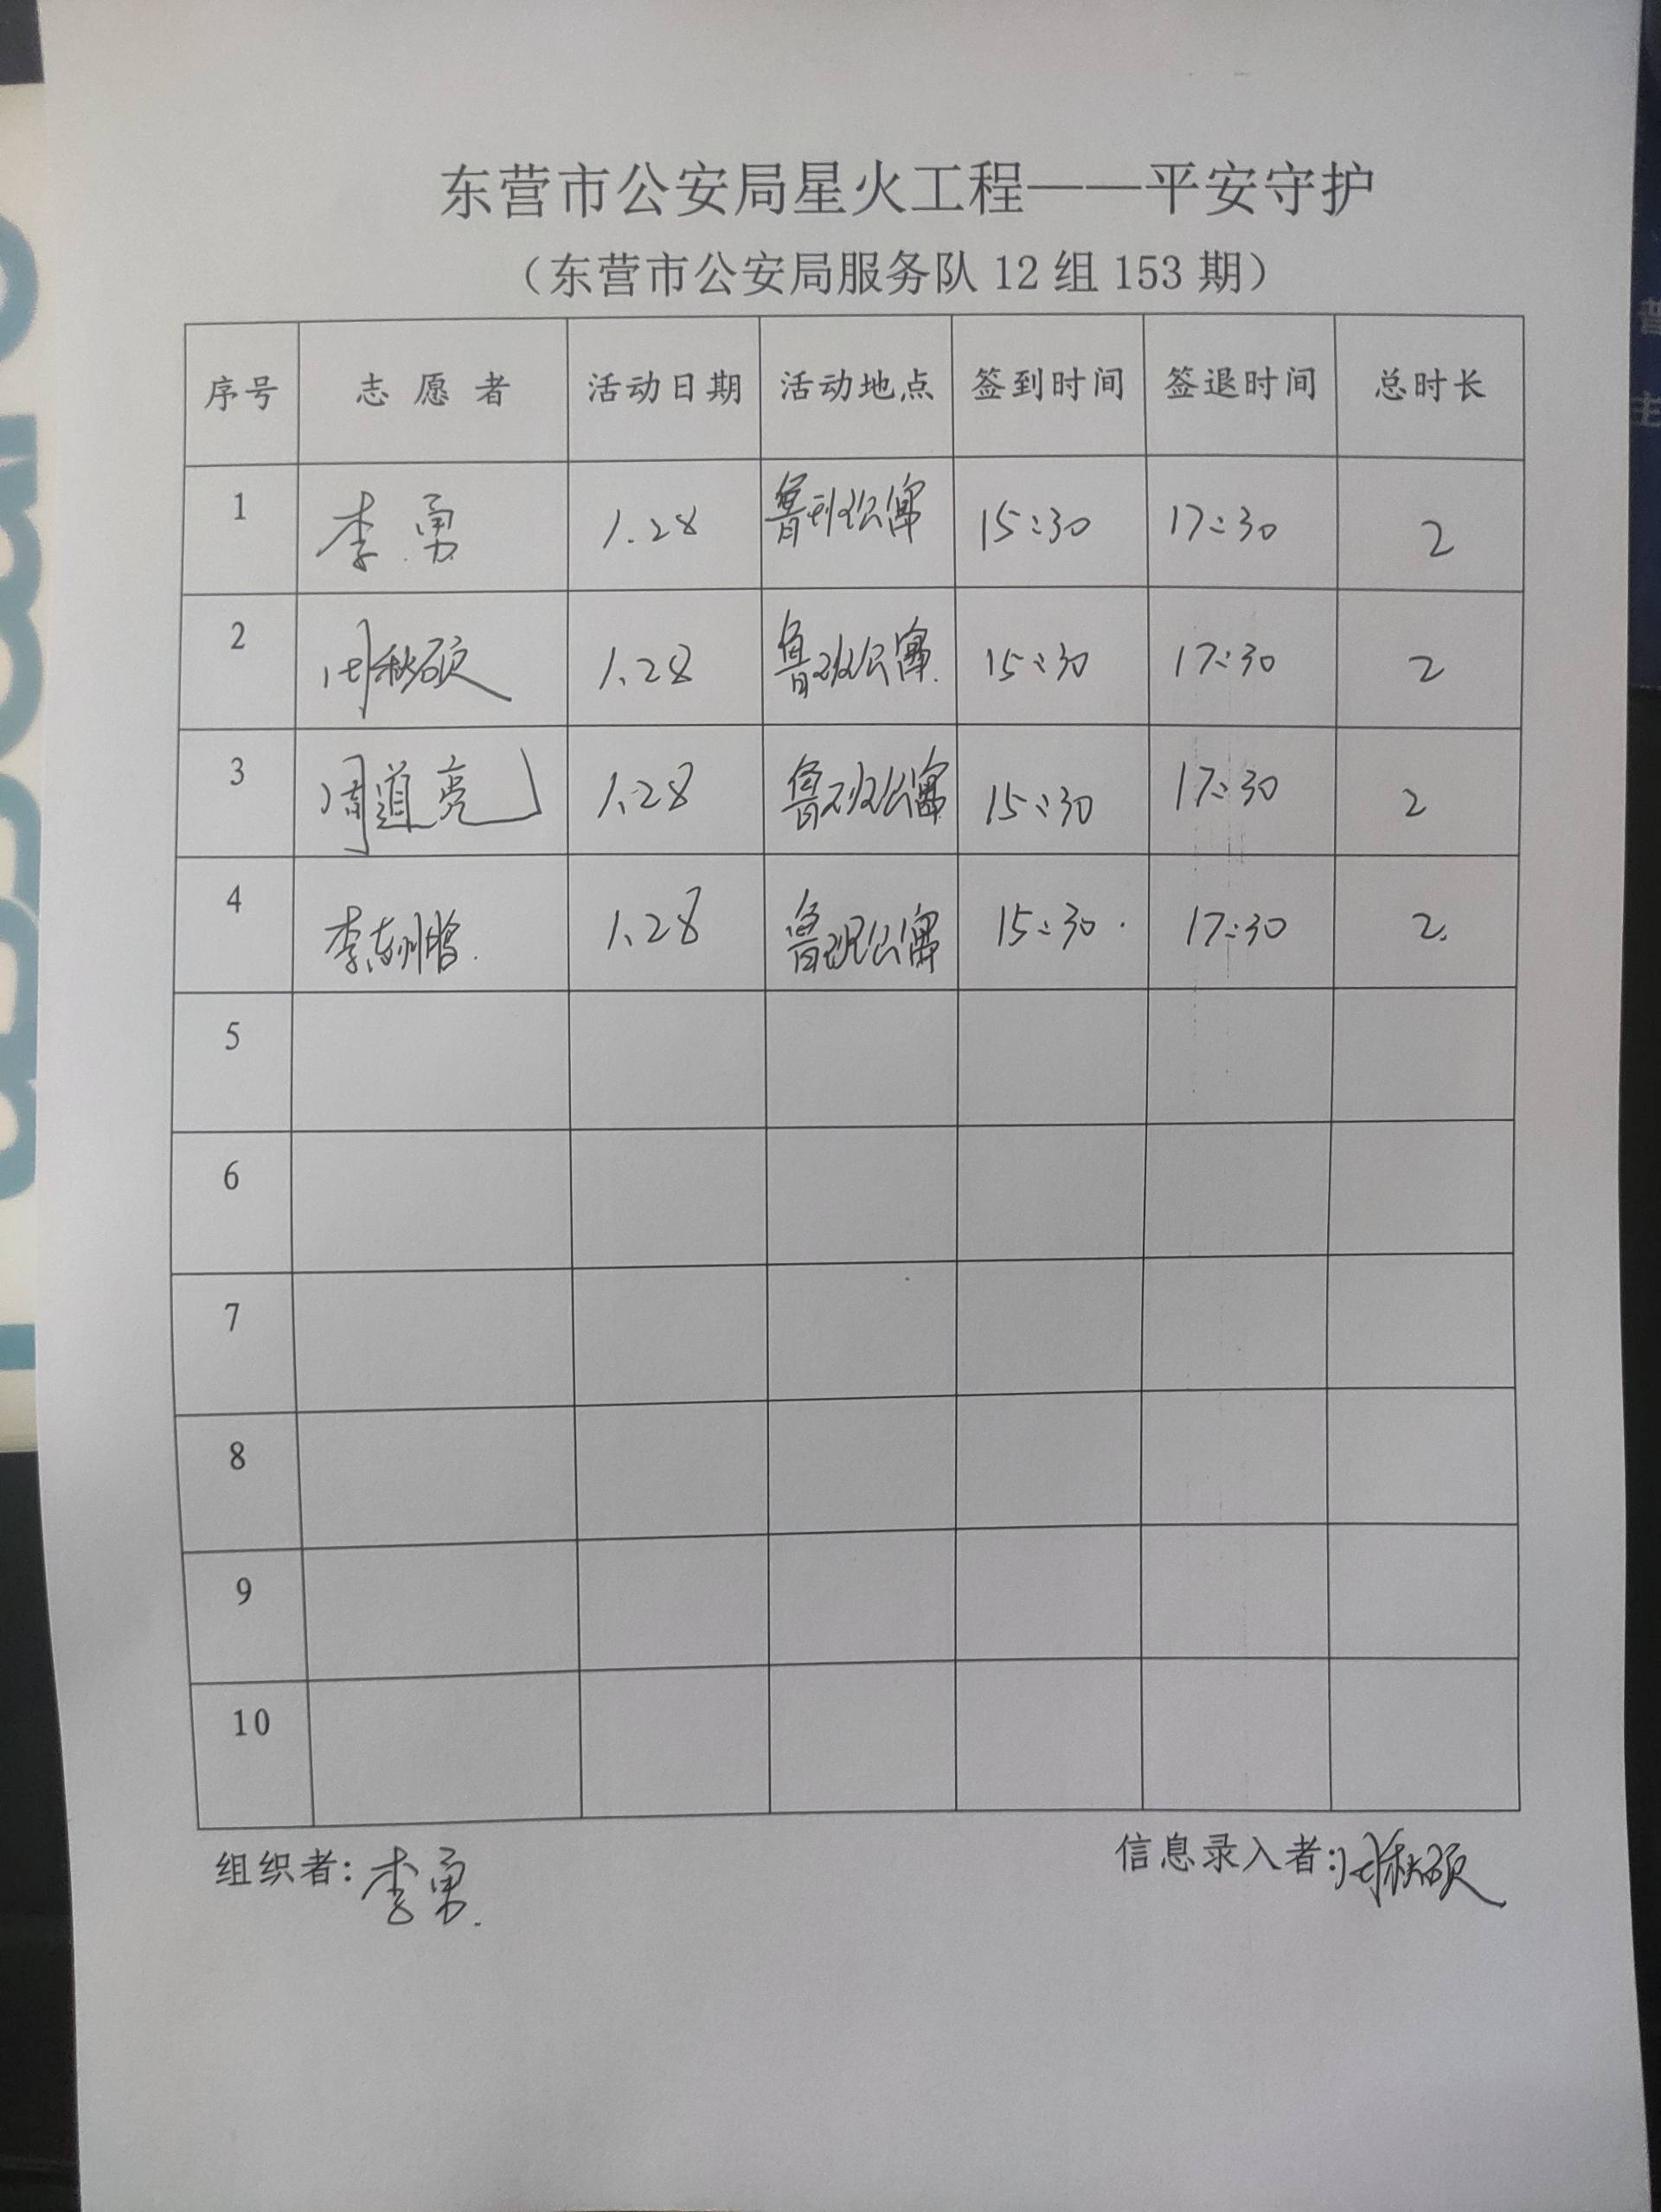 东营市公安局星火工程——平安守护
（东营市公安局服务队 12 组 153 期）
序号 志愿者 活动日期 活动地点 签到时间 签退时间 总时长
1 李勇 1.28 鲁班公寓 15:30 17:30 2
2 周秋硕 1.28 鲁班公寓 15:30 17:30 2
3 周道亮 1.28 鲁班公寓 15:30 17:30 2
4 李 1.28 鲁班公寓 15:30 17:30 2
5
6
7
8
9
10
组织者：李勇 信息录入者：周秋硕